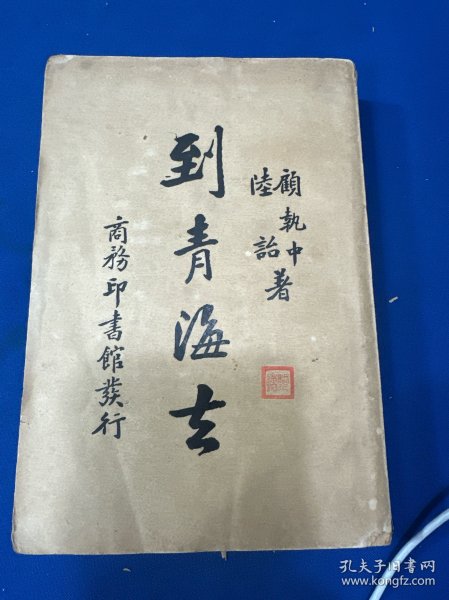 顧執中
陸詒 著
到青海去
商務印書館發行
孔夫子旧书网
www.kongfz.com